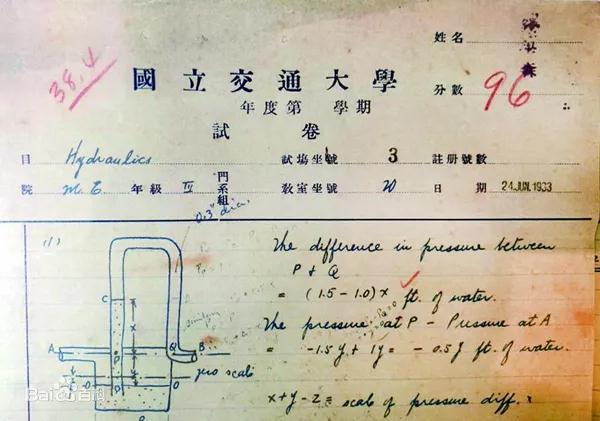 姓名
38.4
國立交通大學
分數 96
年度第 學期
試卷
目 Hydraulics 試場坐號 3 註册號數
院 M.E. 年級 IV 門系組 教室坐號 20 日期 24 JUN. 1933
0.3" dia.
(1)
The difference in pressure between
P & Q
= (1.5 - 1.0) x ft. of water.
The pressure at P - Pressure at A
= -1.5 y + 1y = - 0.5 y ft. of water.
x + y - z = scale of pressure diff.
C
x
A
P
Q
B
zero scale
O
D
O
Bai百科